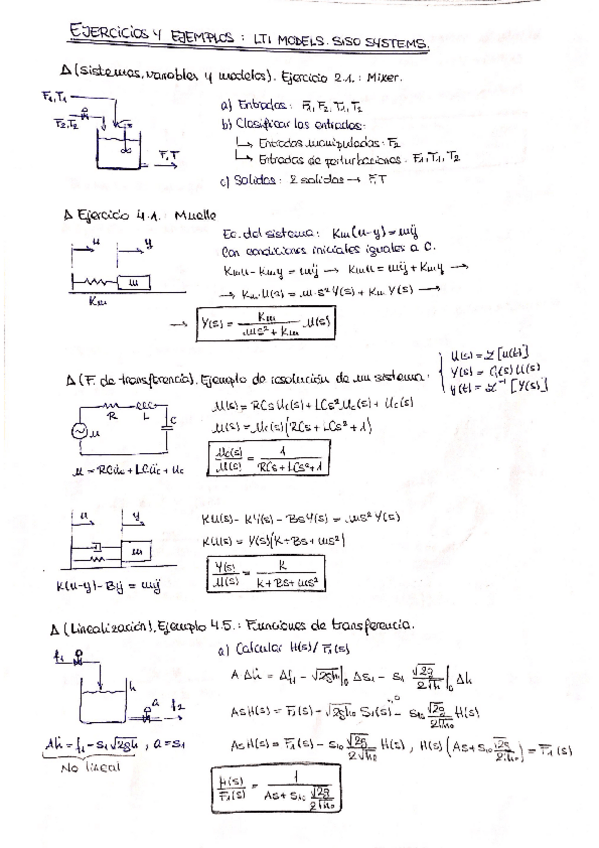 EJERCICIOS Y EJEMPLOS: LTI MODELS. SISO SYSTEMS.
Δ (Sistemas, variables y modelos). Ejercicio 2.1.: Mixer.
F₁,T₁
F₂,T₂
F,T
a) Entradas: F₁, F₂, T₁, T₂
b) Clasificar las entradas:
↳ Entradas manipuladas: F₂
↳ Entradas de perturbaciones: F₁, T₁, T₂
c) Salidas: 2 salidas → F,T
Δ Ejercicio 4.1.: Muelle
u
y
m
Km
Ec. del sistema: Km(u-y) = mÿ
Con condiciones iniciales iguales a 0.
Kmu - Kmy = mÿ → Kmu = mÿ + Kmy →
→ Km·U(s) = m·s²Y(s) + Km·Y(s) →
→ Y(s) = Km / (ms² + Km) · U(s)
Δ (F. de transferencia). Ejemplo de resolución de un sistema:
U(s) = ℒ[u(t)]
Y(s) = G(s)U(s)
y(t) = ℒ⁻¹[Y(s)]
R
L
C
u
u = RCu̇c + LCüc + uc
U(s) = RCsUc(s) + LCs²Uc(s) + Uc(s)
U(s) = Uc(s)(RCs + LCs² + 1)
Uc(s)/U(s) = 1 / (RCs + LCs² + 1)
u
y
m
K(u-y) - Bẏ = mÿ
KU(s) - KY(s) - BsY(s) = ms²Y(s)
KU(s) = Y(s)(K + Bs + ms²)
Y(s)/U(s) = K / (K + Bs + ms²)
Δ (Linealización). Ejemplo 4.5.: Funciones de transferencia.
f₁
h
a
f₂
Aḣ = f₁ - s₁√2gh , a = s₁
No lineal
a) Calcular H(s)/F₁(s)
AΔḣ = Δf₁ - √2gh|₀ Δs₁ - s₁ √2g/2√h |₀ Δh
AsH(s) = F₁(s) - √2gh₀ S₁(s) - s₁₀ √2g/2√h₀ H(s)
0
AsH(s) = F₁(s) - s₁₀ √2g/2√h₀ H(s) , H(s)(As + s₁₀ √2g/2√h₀) = F₁(s)
H(s)/F₁(s) = 1 / (As + s₁₀ √2g/2√h₀)